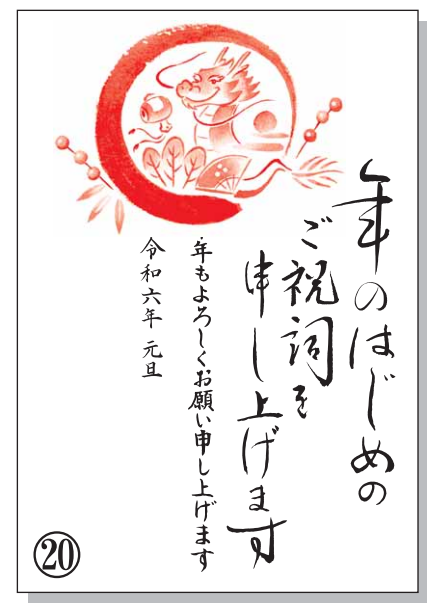 年のはじめの
ご祝詞を
申し上げます
年もよろしくお願い申し上げます
令和六年 元旦
⑳